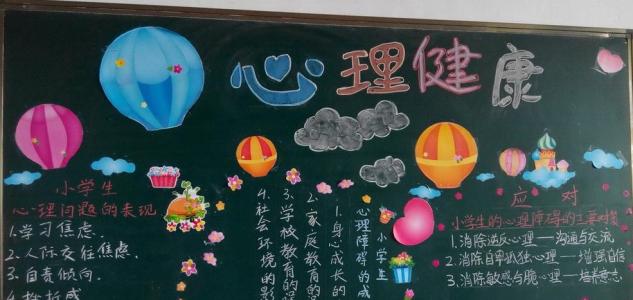 心理健康
小学生
心理问题的表现
1.学习焦虑
2.人际交往焦虑.
3.自责倾向.
小学生
心理障碍的成
1.身心成长的
2.家庭教育的
3.学校教育的
4.社会环境的影
应对
小学生的心理障碍的主要对
1.消除逆反心理——沟通与交流
2.消除自卑孤独心理——增强自信
3.消除敏感与脆心理——培养意志